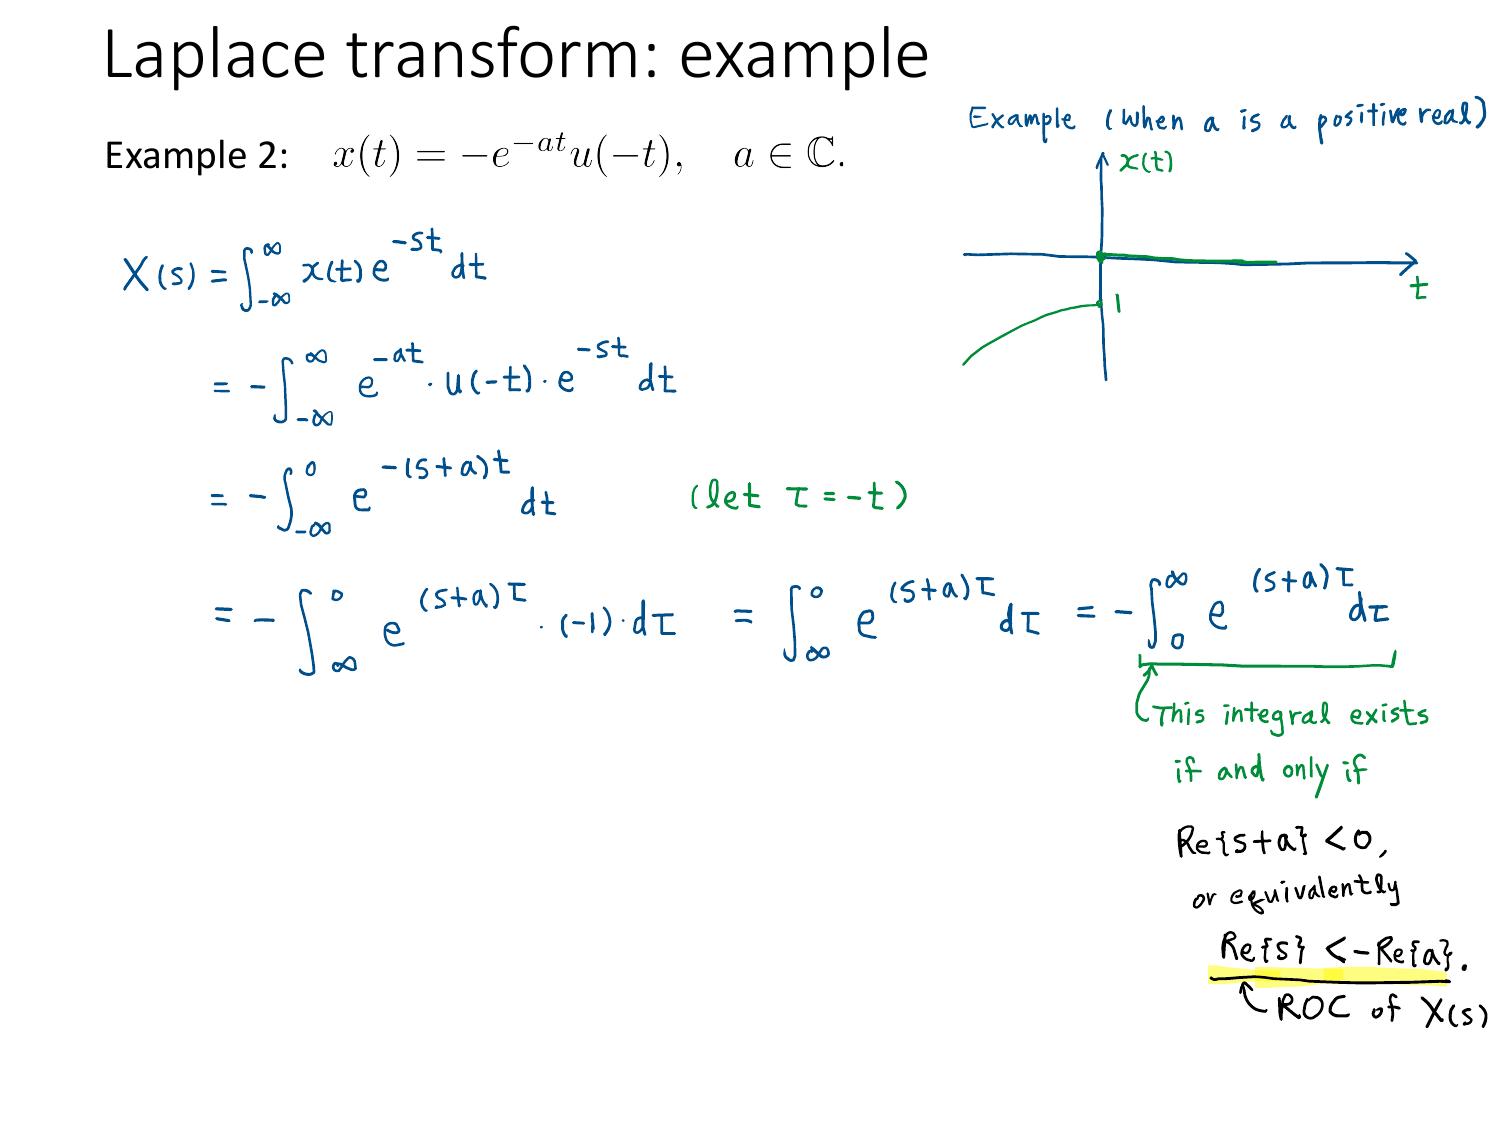 Laplace transform: example
Example (when a is a positive real)
Example 2: x(t) = −e^{−at}u(−t), a ∈ ℂ.
x(t)
X(s) = ∫_{-∞}^{∞} x(t) e^{-st} dt
t
1
= - ∫_{-∞}^{∞} e^{-at} · u(-t) · e^{-st} dt
= - ∫_{-∞}^{0} e^{-(s+a)t} dt (let τ = -t)
= - ∫_{∞}^{0} e^{(s+a)τ} · (-1) · dτ = ∫_{∞}^{0} e^{(s+a)τ} dτ = - ∫_{0}^{∞} e^{(s+a)τ} dτ
This integral exists
if and only if
Re{s+a} < 0,
or equivalently
Re{s} < -Re{a}.
ROC of X(s)